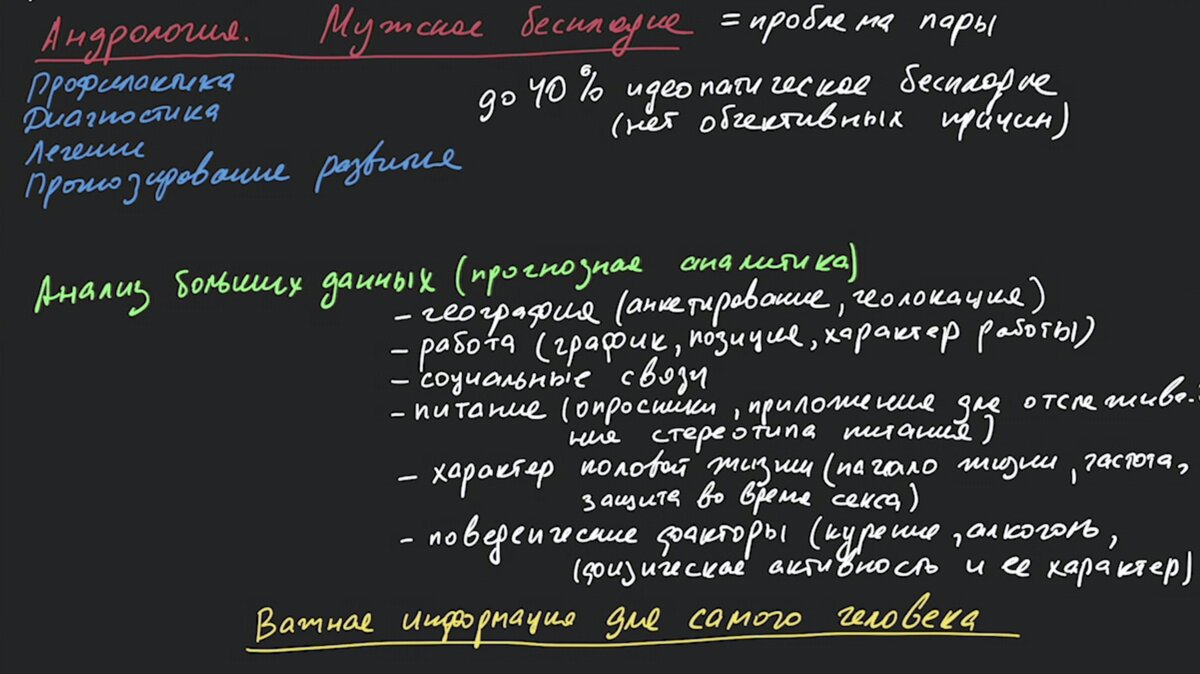 Андрология. Мужское бесплодие = проблема пары
Профилактика
до 40% идеопатическое бесплодие
Диагностика
(нет объективных причин)
Лечение
Прогнозирование развития
Анализ больших данных (прогнозная аналитика)
- география (анкетирование, геолокация)
- работа (график, позиция, характер работы)
- социальные связи
- питание (опросники, приложения для отслежива-
ния стереотипа питания)
- характер половой жизни (начало жизни, частота,
защита во время секса)
- поведенческие факторы (курение, алкоголь,
(физическая активность и ее характер)
Важная информация для самого человека